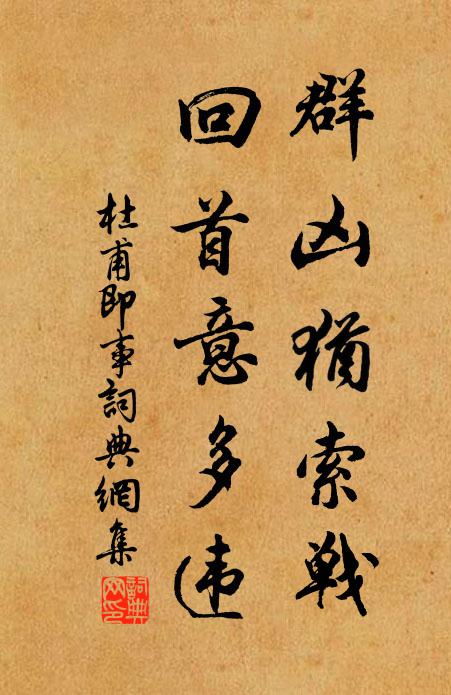 群凶猶索戰
回首意多违
杜甫即事詞典網集
詞典網印